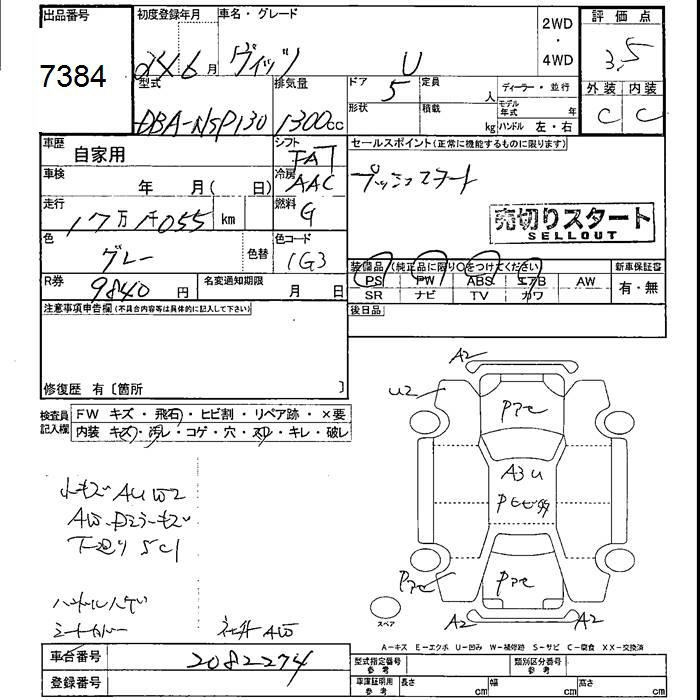 出品番号
7384
初度登録年月
24 6 月
車名・グレード
ヴィッツ U
2WD
・
4WD
評価点
3.5
外装 内装
C C
型式
DBA-NSP130
排気量
1300cc
ドア 5
定員 人
形状
積載 kg
ディーラー・並行
モデル年式 年
ハンドル 左・右
車歴
自家用
シフト FAT
車検
年 月 ( 日)
冷房 AAC
走行
17万1千055 km
燃料 G
色
グレー
色替
色コード 1G3
R券 9840 円
名変通知期限
月 日
セールスポイント(正常に機能するものに限ります)
プッシュスタート
売切りスタート
SELLOUT
装備品 (純正品に限り○をつけてください)
PS PW ABS エアB AW
SR ナビ TV カワ
新車保証書
有・無
後日品
注意事項申告欄(不具合内容等は具体的に記入して下さい)
修復歴 有〔箇所 〕
検査員記入欄
FW キズ・飛石・ヒビ割・リペア跡・×要
内装 キズ・汚レ・コゲ・穴・スリ・キレ・破レ
小キズ AUW2
下廻り SC1
ハンドルハゲ
シートカバー
AW
A2
U2
Pアセ
A3U
Pアセ
Pアセ
A2
A2
スペア
A-キズ E-エクボ U-凹み W-補修跡 S-サビ C-腐食 XX-交換済
車台番号
2082274
登録番号
型式指定番号 参考
類別区分番号 参考
車庫証明用 参考
長さ cm
幅 cm
高さ cm